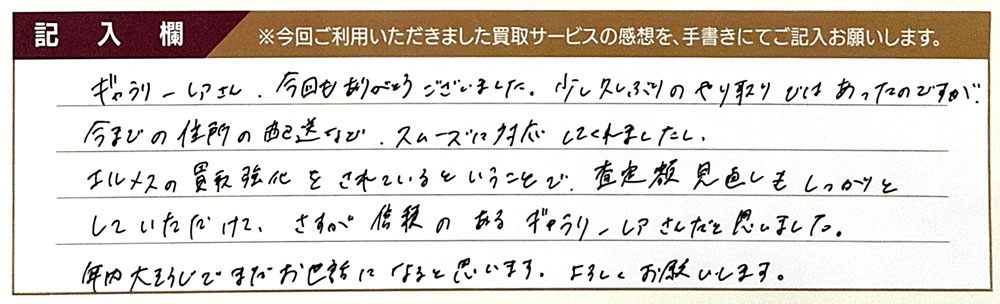 記入欄
※今回ご利用いただきました買取サービスの感想を、手書きにてご記入お願いします。
ギャラリーレアさん、今回もありがとうございました。少し久しぶりのやり取りではあったのですが、
今までの住所の配送など、スムーズに対応してくれましたし、
エルメスの買取強化をされているということで、査定額見直しもしっかりと
していただけて、さすが信頼のあるギャラリーレアさんだと思いました。
年内大そうじでまたお世話になると思います。よろしくお願いします。